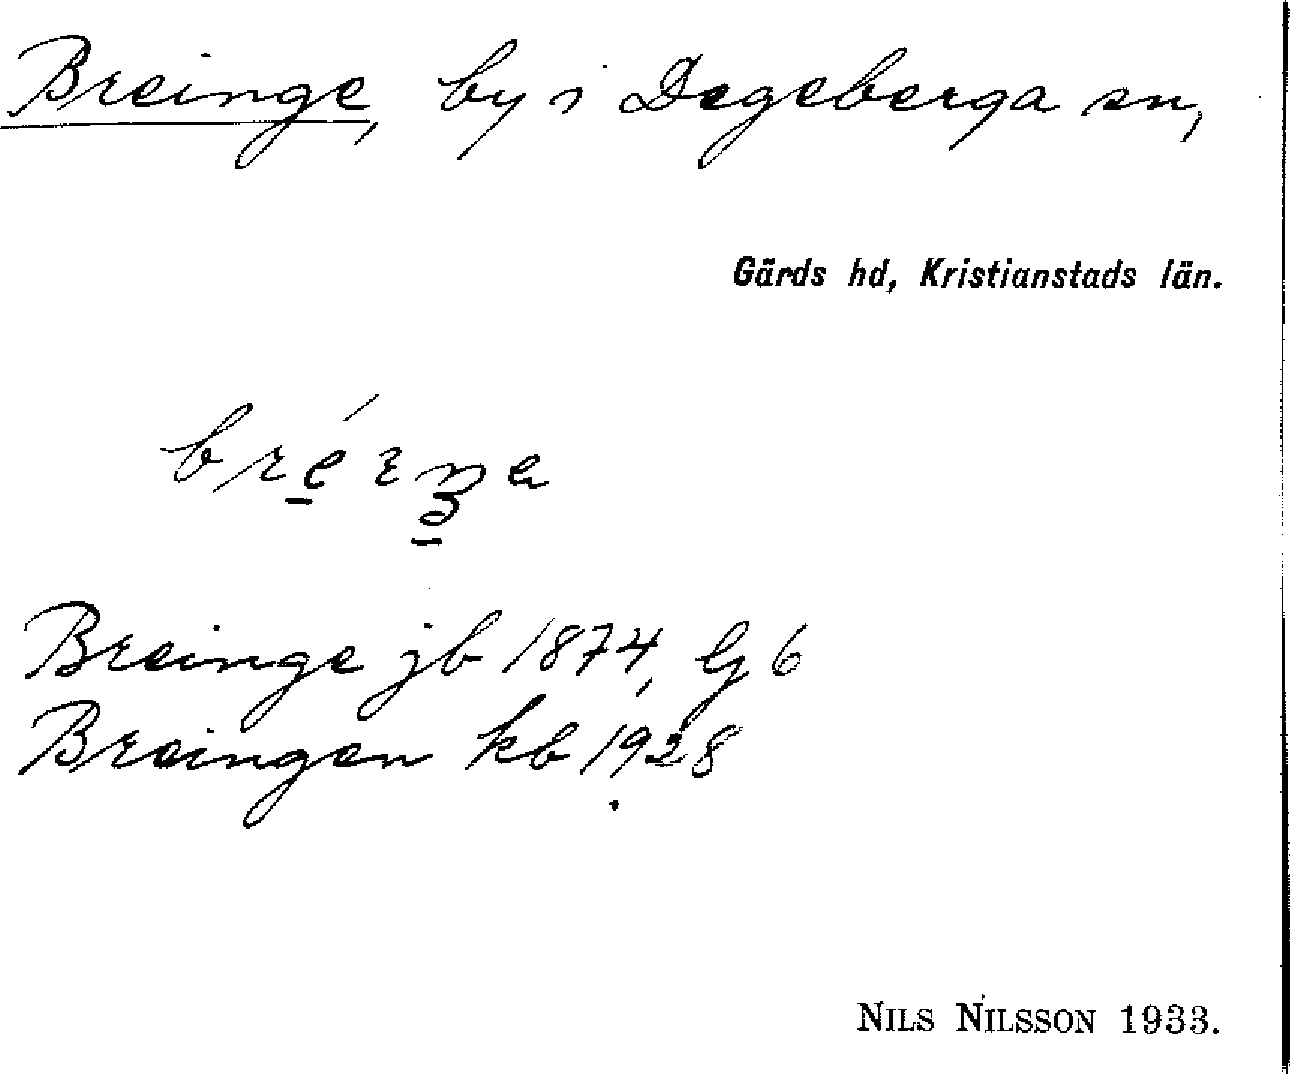 Breinge, by i Degeberga sn,
Gärds hd, Kristianstads län.
Breinge jb 1874, G 6
Breingen kb 1928
NILS NILSSON 1933.